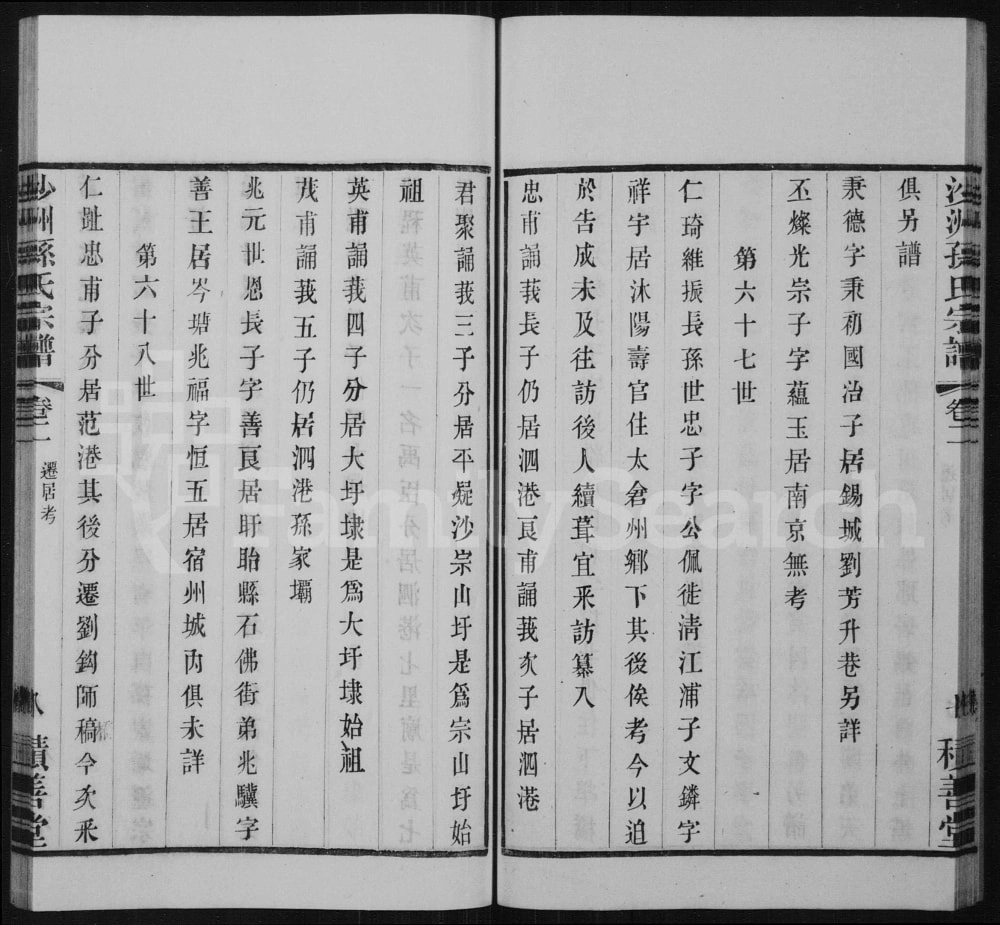 沙洲孫氏宗譜
卷二
俱另譜
秉德字秉初國治子居錫城劉芳升巷另詳
丕燦光宗子字蘊玉居南京無考
第六十七世
仁琦維振長孫世忠子字公佩徙淸江浦子文鏻字
祥宇居沐陽壽官住太倉州鄉下其後俟考今以迫
於告成未及往訪後人續葺宜釆訪纂入
忠甫誦莪長子仍居泗港良甫誦莪次子居泗港
種善堂
君聚誦莪三子分居平凝沙崇山圩是爲宗山圩始
祖
英甫誦莪四子分居大圩埭是爲大圩埭始祖
茂甫誦莪五子仍居泗港孫家壩
兆元世恩長子字善良居盱眙縣石佛街弟兆驥字
善王居岑塘兆福字恒五居宿州城內俱未詳
第六十八世
仁趾忠甫子分居范港其後分遷劉鈎師稿今次釆
沙洲孫氏宗譜
卷二
遷居考
八
積善堂
FamilySearch